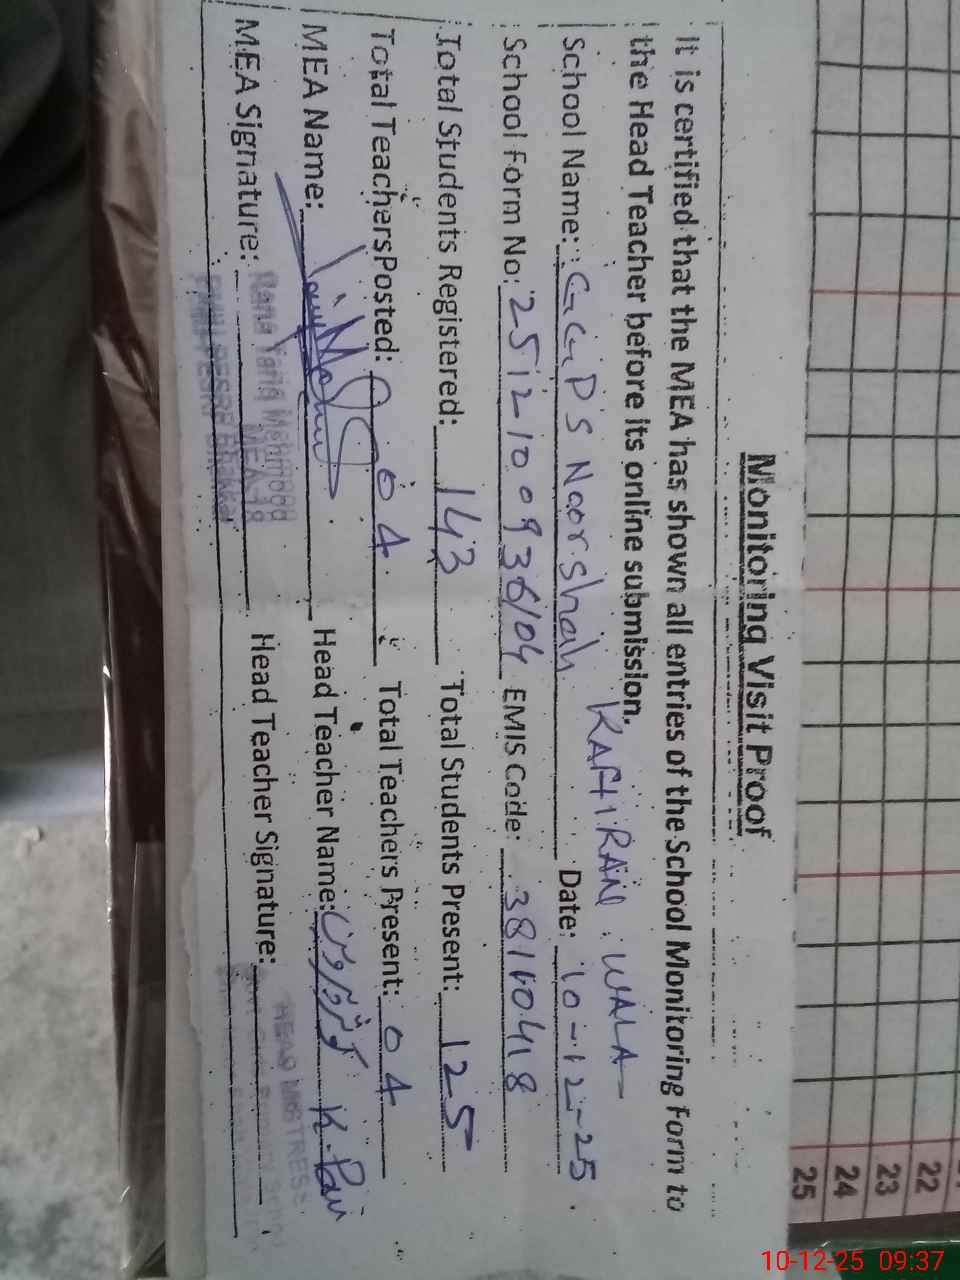 Monitoring Visit Proof
It is certified that the MEA has shown all entries of the School Monitoring Form to
the Head Teacher before its online submission.
School Name: GGPS Noorshah WALA Date: 10-12-25
School Form No: EMIS Code:
Total Students Registered: 143 Total Students Present: 125
Total Teachers Posted: 04 Total Teachers Present: 04
MEA Name: Head Teacher Name:
MEA Signature: Rana Mehmood Head Teacher Signature:
MEA-18
HEAD MISTRESS
22
23
24
25
10-12-25 09:37